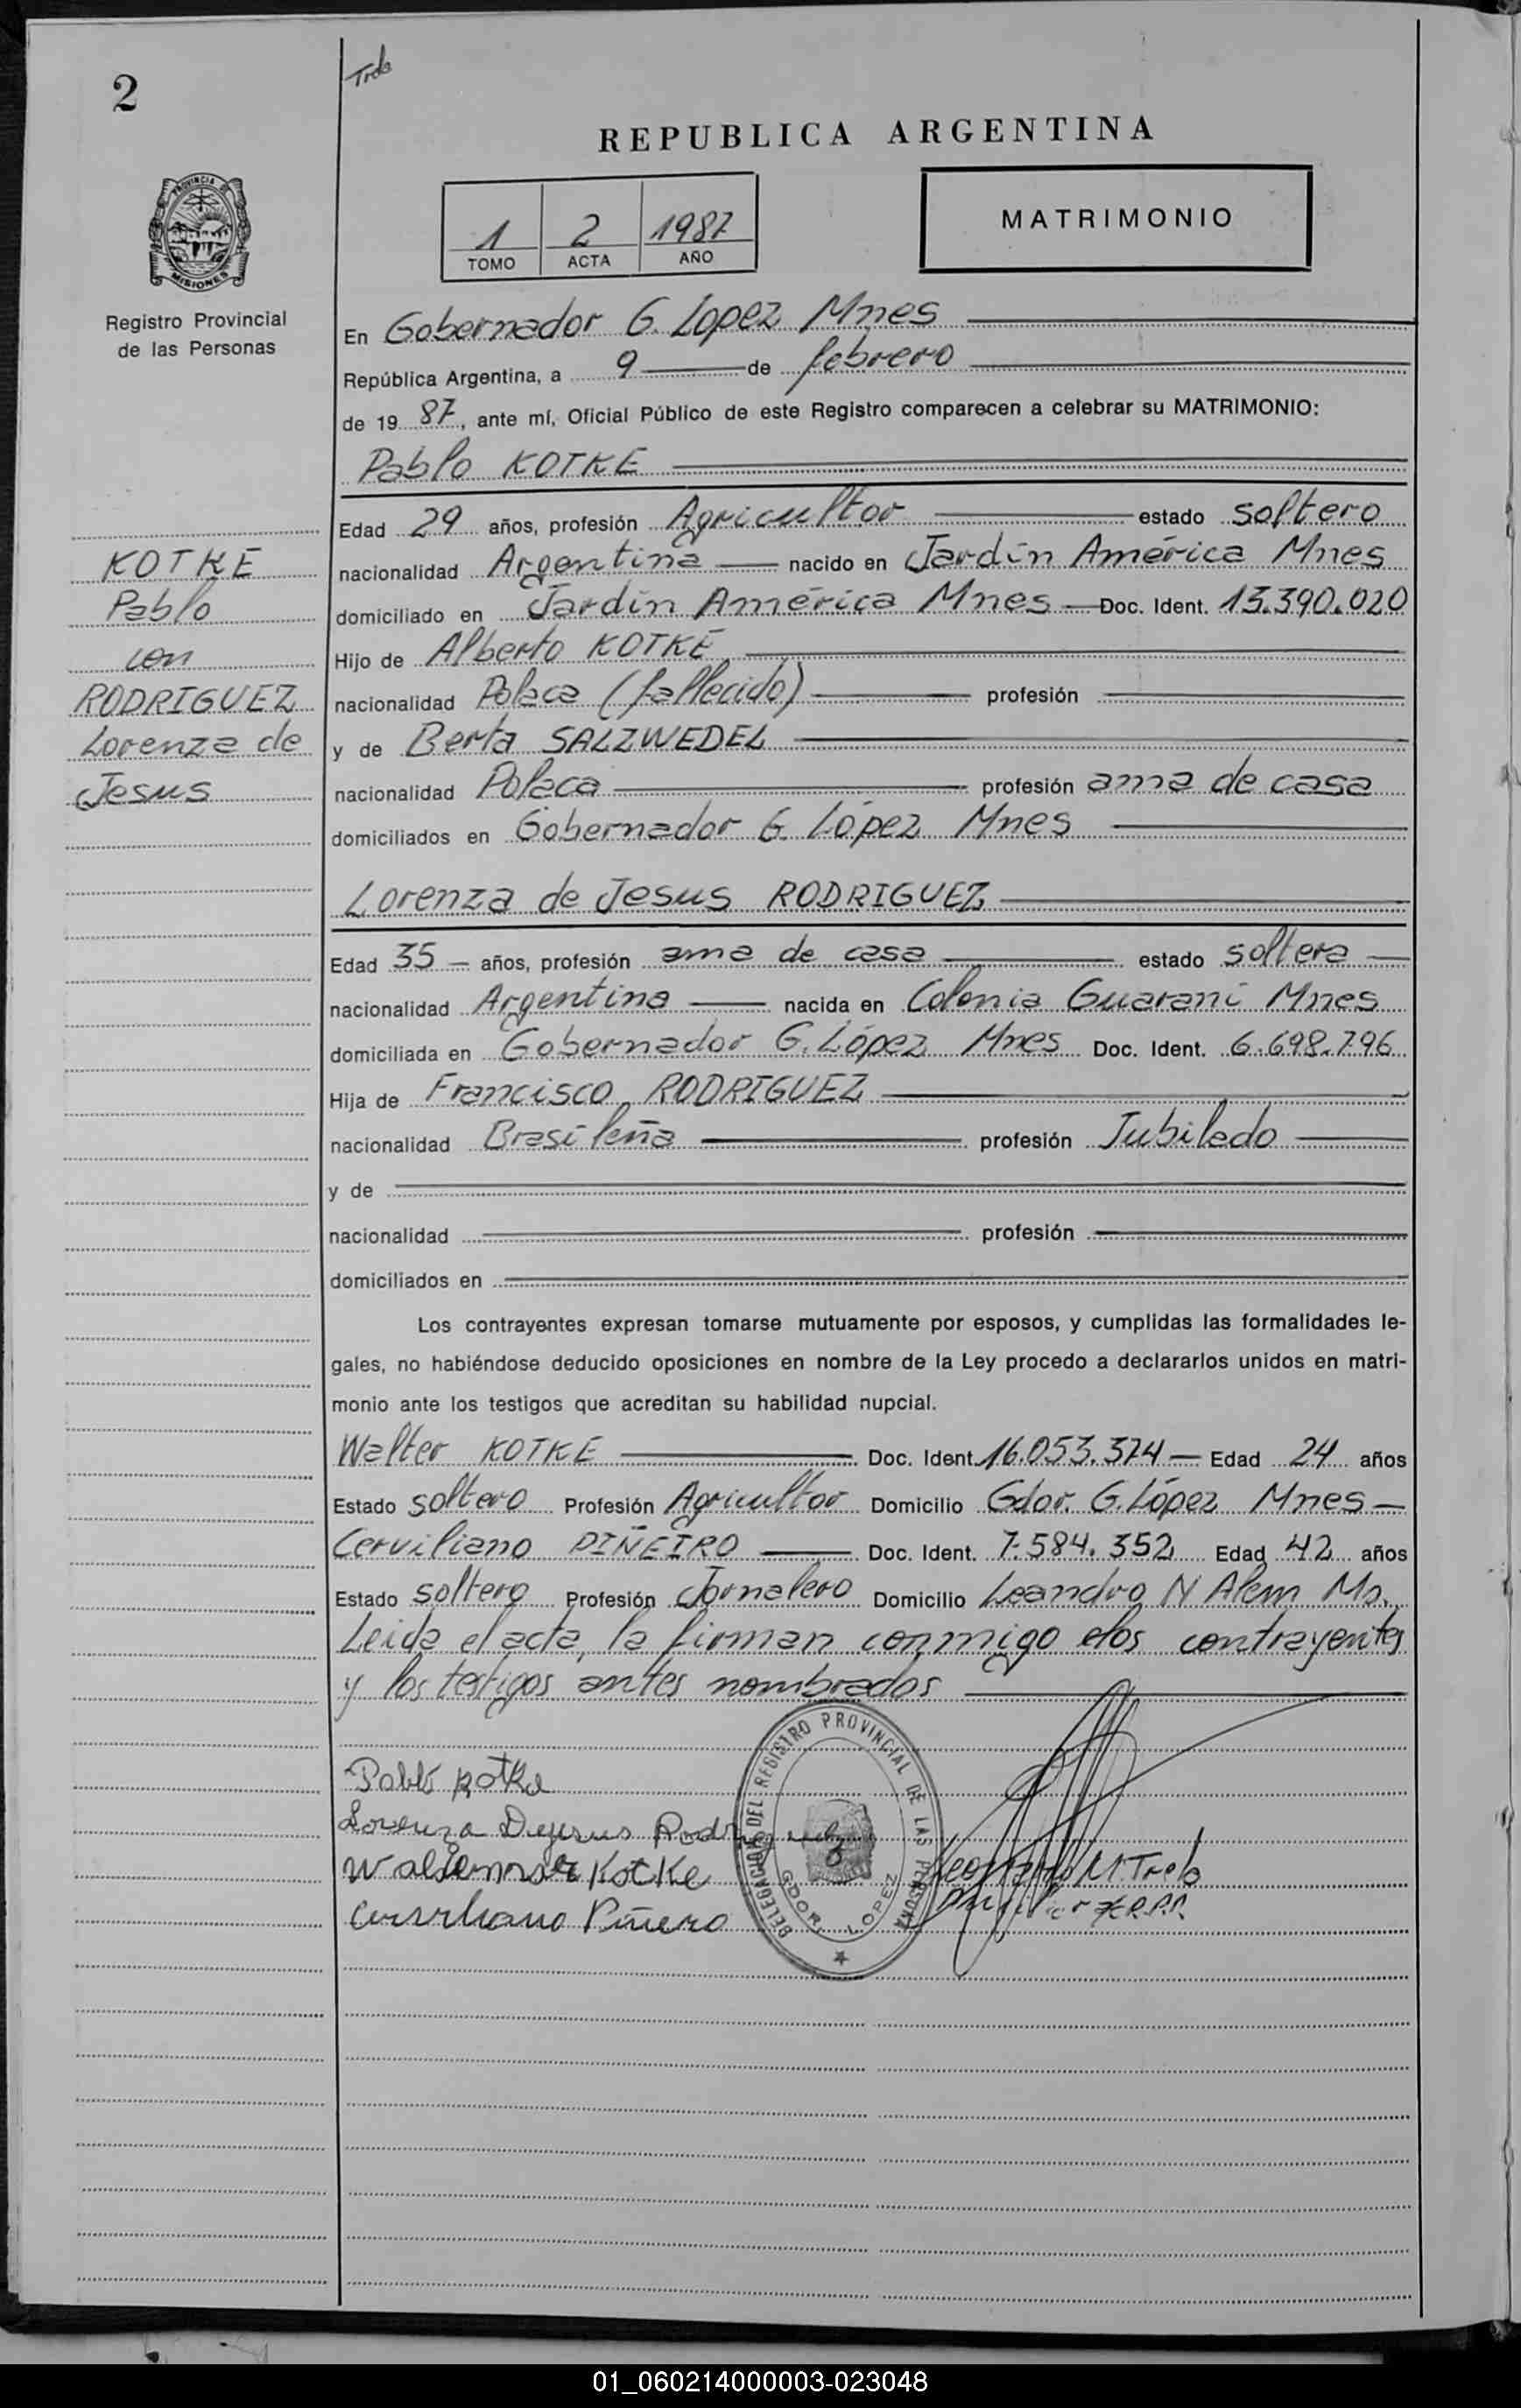 2
Trda
REPUBLICA ARGENTINA
PROVINCIA DE
MISIONES
1 2 1987
TOMO ACTA AÑO
MATRIMONIO
Registro Provincial
de las Personas
En Gobernador G. Lopez Mnes
República Argentina, a 9 de febrero
de 19 87, ante mí, Oficial Público de este Registro comparecen a celebrar su MATRIMONIO:
Pablo KOTKE
Edad 29 años, profesión Agricultor estado soltero
KOTKE
Pablo
con
RODRIGUEZ
Lorenza de
Jesus
nacionalidad Argentina nacido en Jardín América Mnes
domiciliado en Jardín América Mnes Doc. Ident. 13.390.020
Hijo de Alberto KOTKE
nacionalidad Polaca (fallecido) profesión
y de Berta SALZWEDEL
nacionalidad Polaca profesión ama de casa
domiciliados en Gobernador G. López Mnes
Lorenza de Jesus RODRIGUEZ
Edad 35 años, profesión ama de casa estado soltera
nacionalidad Argentina nacida en Colonia Guaraní Mnes
domiciliada en Gobernador G. López Mnes Doc. Ident. 6.698.796
Hija de Francisco RODRIGUEZ
nacionalidad Brasileña profesión Jubilado
y de
nacionalidad profesión
domiciliados en
Los contrayentes expresan tomarse mutuamente por esposos, y cumplidas las formalidades le-
gales, no habiéndose deducido oposiciones en nombre de la Ley procedo a declararlos unidos en matri-
monio ante los testigos que acreditan su habilidad nupcial.
Walter KOTKE Doc. Ident. 16.053.374 Edad 24 años
Estado soltero Profesión Agricultor Domicilio Gdor. G. López Mnes
Cerviliano PIÑEIRO Doc. Ident. 7.584.352 Edad 42 años
Estado soltero Profesión Jornalero Domicilio Leandro N Alem Ms.
Leida el acta, la firman conmigo los contrayentes
y los testigos antes nombrados
DELEGACION DEL REGISTRO PROVINCIAL DE LAS PERSONAS
GDOR. LOPEZ
Pablo Kotke
Lorenza Dejesus Rodriguez
Waldemar Kotke
Piñero
M. Trela
01_060214000003-023048